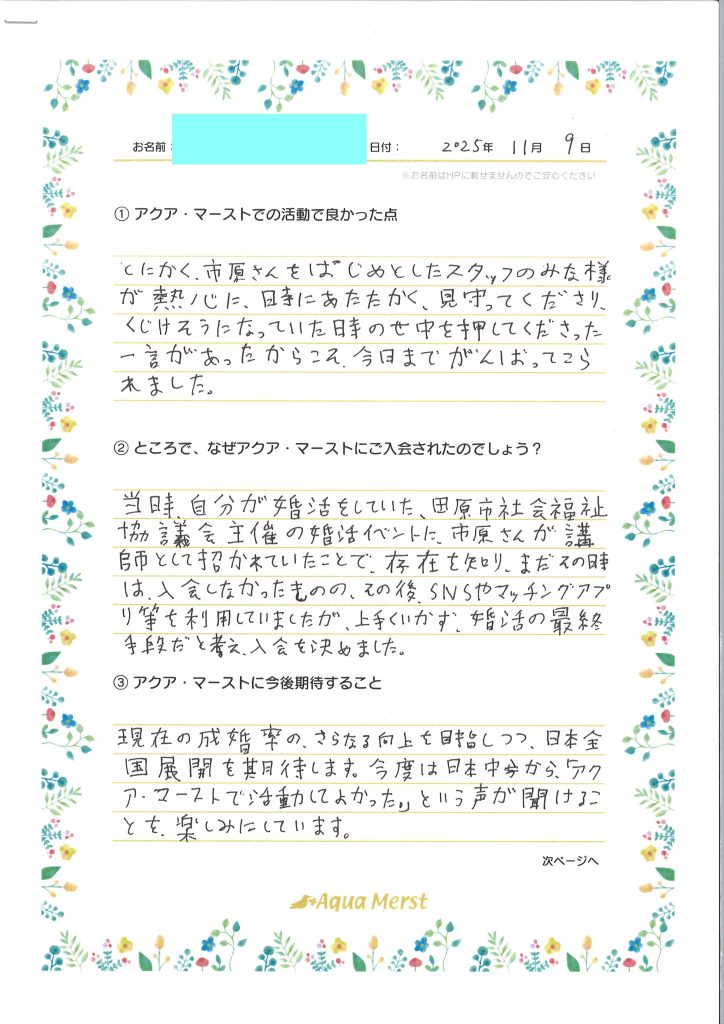 お名前：
日付： 2025年 11月 9日
※お名前はHPに載せませんのでご安心ください
① アクア・マーストでの活動で良かった点
とにかく、市原さんをはじめとしたスタッフのみな様
が熱心に、時にあたたかく、見守ってくださり、
くじけそうになっていた時のせ中を押してくださった
一言があったからこそ、今日までがんばってこら
れました。
② ところで、なぜアクア・マーストにご入会されたのでしょう？
当時、自分が婚活をしていた、田原市社会福祉
協議会主催の婚活イベントに、市原さんが講
師として招かれていたことで、存在を知り、まだその時
は、入会しなかったものの、その後、SNSやマッチングアプ
リ等を利用していましたが、上手くいかず、婚活の最終
手段だと考え、入会を決めました。
③ アクア・マーストに今後期待すること
現在の成婚率の、さらなる向上を目指しつつ、日本全
国展開を期待します。今度は日本中から、「アク
ア・マーストで活動してよかった。」という声が聞けるこ
とを、楽しみにしています。
次ページへ
Aqua Merst